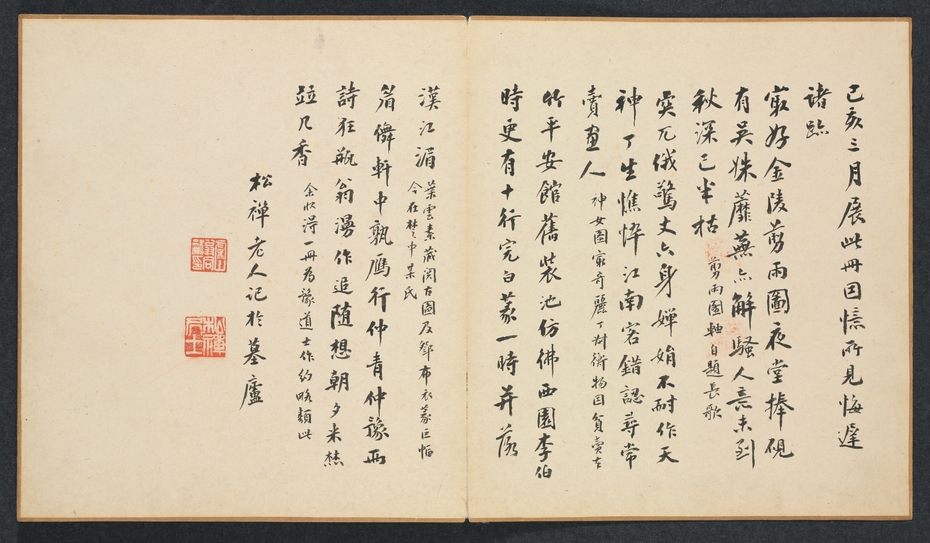 己亥三月展此冊因憶所見悔遲
諸跡
最好金陵剪雨圖夜堂捧硯
有吳姝蘼蕪亦解騷人意未到
秋深已半枯
剪雨圖軸自題長歌
突兀俄驚丈六身嬋娟不耐作天
神丁生憔悴江南客錯認尋常
賣畫人
神女圖最奇麗丁對衡物因貧賣去
竹平安館舊裝池仿佛西園李伯
時更有十行完白篆一時并落
漢江湄
葉雲素藏閱古圖及鄧布衣篆巨幅
今在楚中某氏
眉儕軒中孰雁行仲青仲豫兩
詩狂瓶翁漫作追隨想朝夕米㷊
竝几香
余收得一冊為豫道士作約略類此
松禪老人記於墓廬
松禪
居士